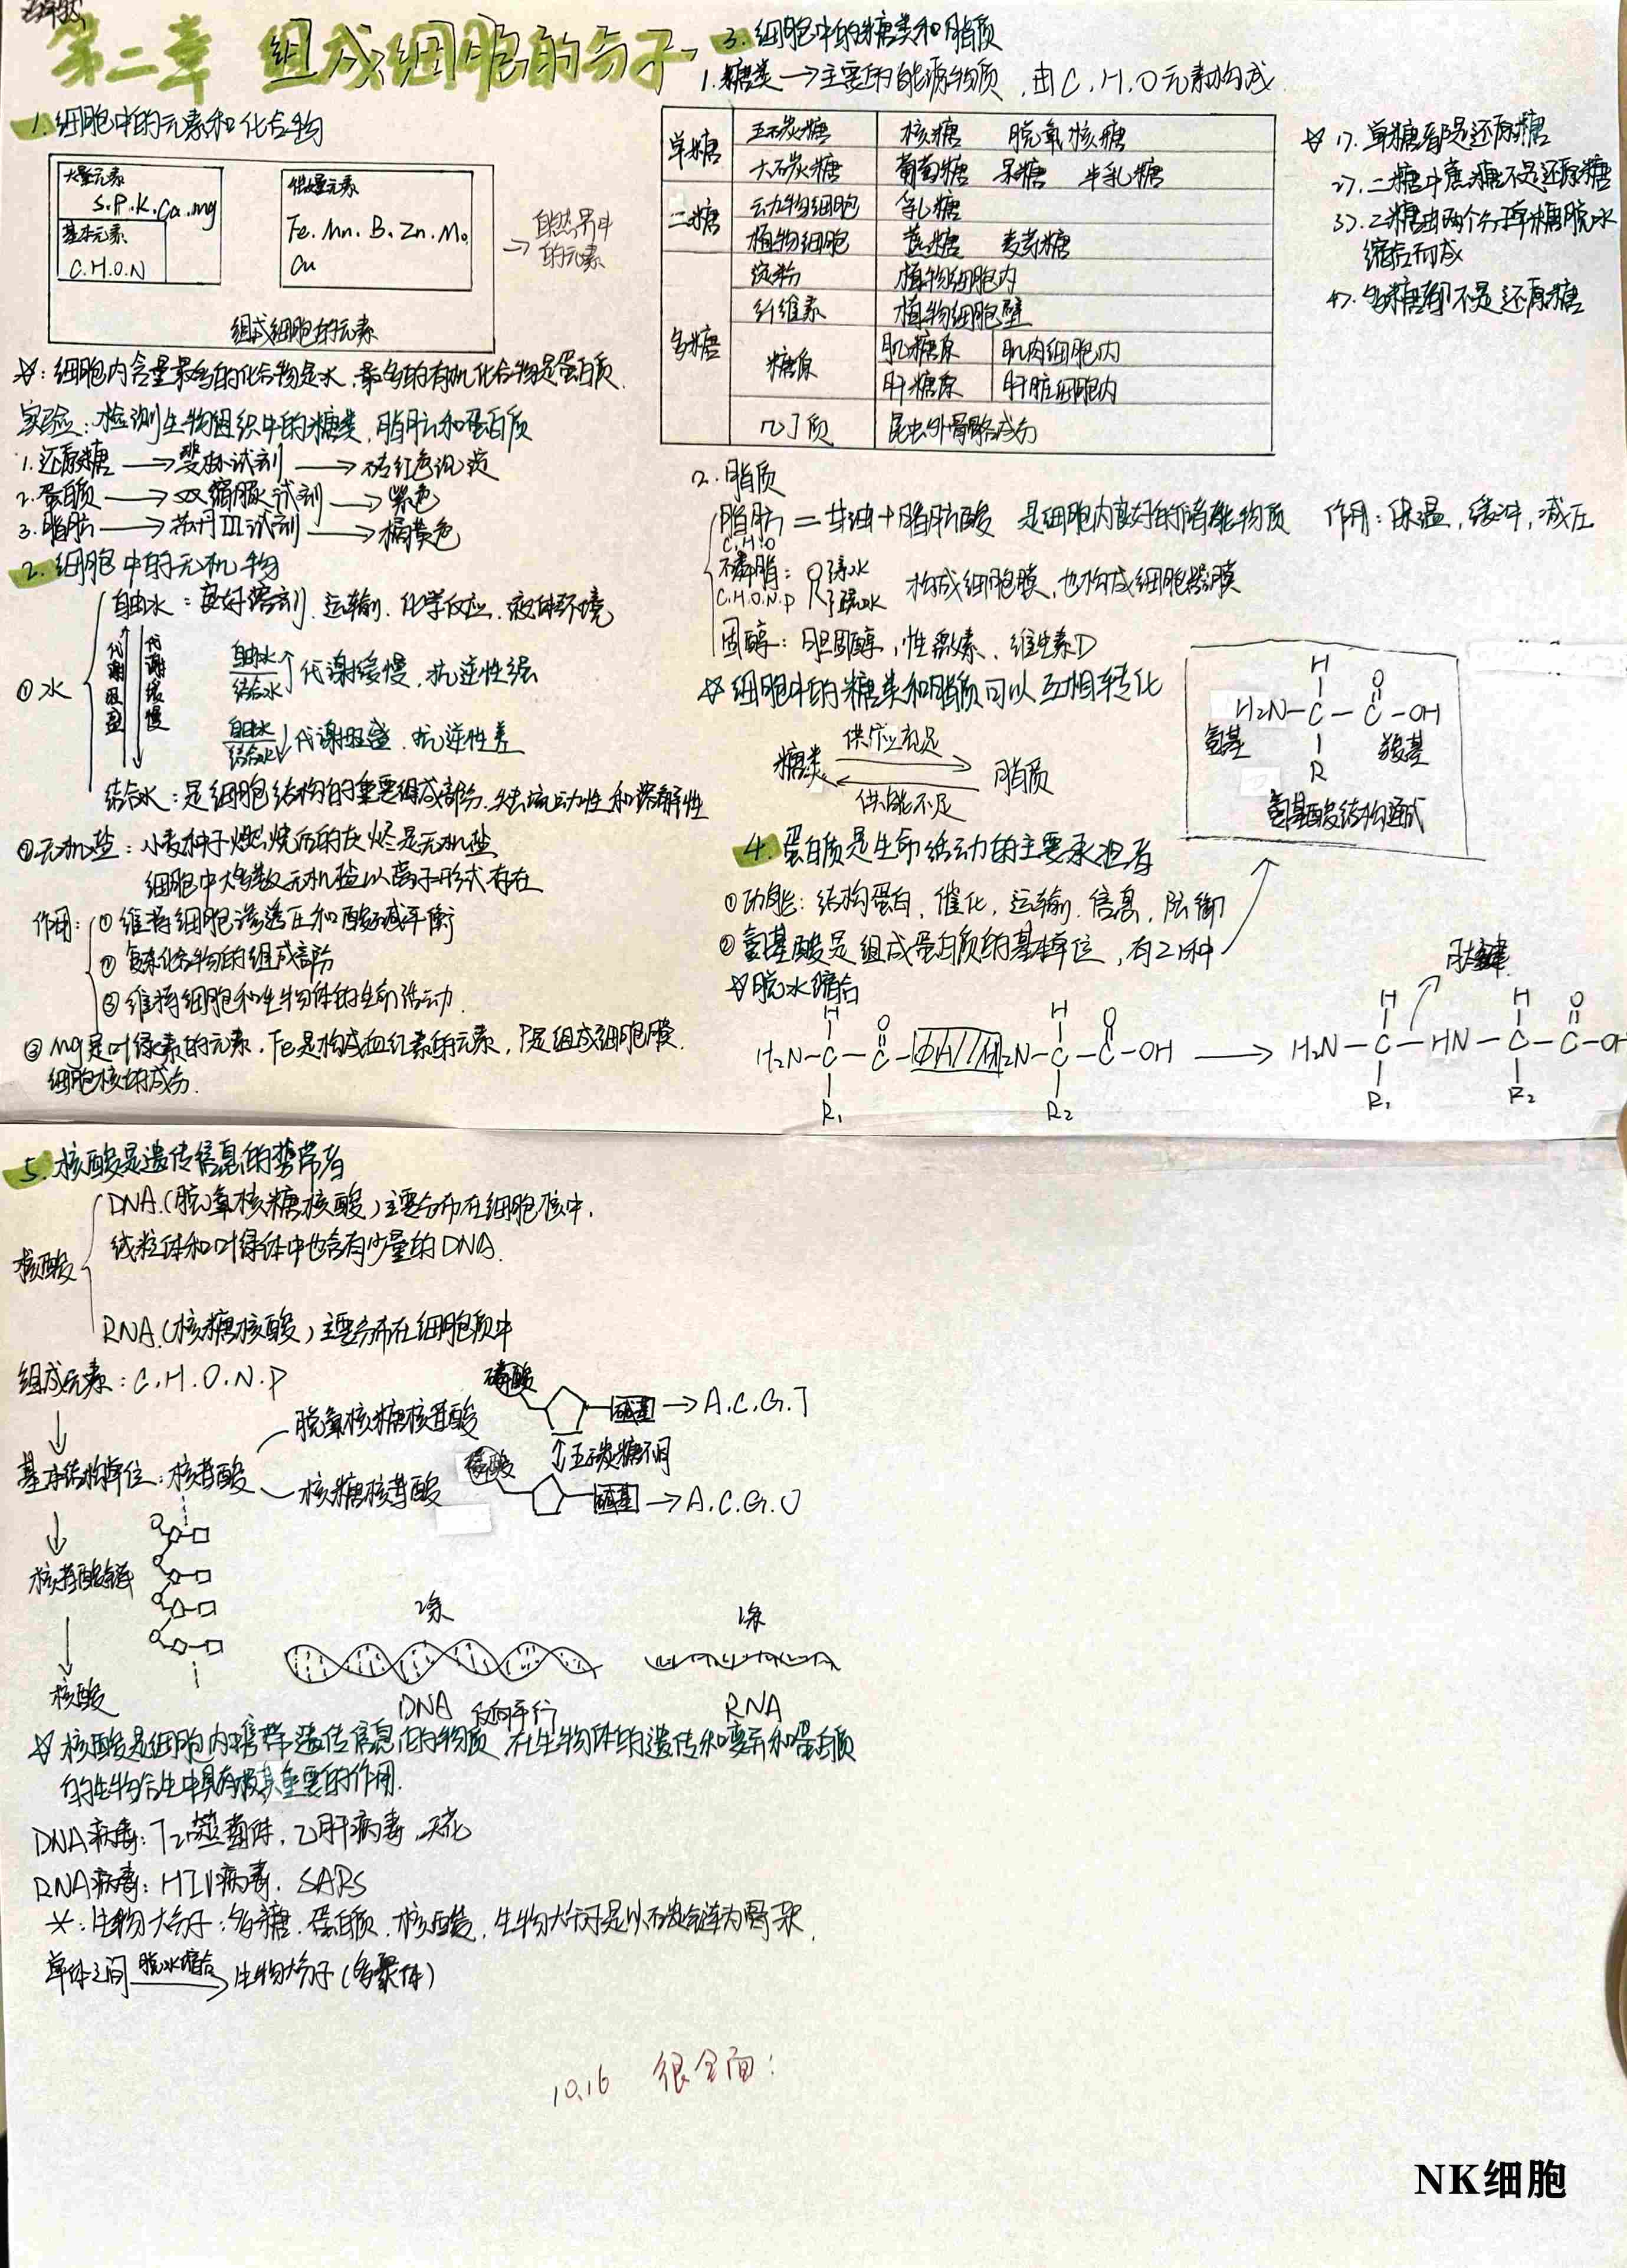 第二章 组成细胞的分子
1.细胞中的元素和化合物
大量元素
S.P.K.Ca.mg
基本元素
C.H.O.N
微量元素
Fe.Mn.B.Zn.Mo.
Cu
组成细胞的元素
→自然界中
的元素
☆:细胞内含量最多的化合物是水,最多的有机化合物是蛋白质.
实验:检测生物组织中的糖类,脂肪和蛋白质
1.还原糖→斐林试剂→砖红色沉淀
2.蛋白质→双缩脲试剂→紫色
3.脂肪→苏丹III试剂→橘黄色
2.细胞中的无机物
①水
自由水:良好溶剂.运输.化学反应.液体环境
代谢旺盛
代谢缓慢
自由水/结合水↑代谢缓慢.抗逆性强
自由水/结合水↓代谢旺盛.抗逆性差
结合水:是细胞结构的重要组成部分.失去流动性和溶解性
②无机盐:小麦种子燃烧后的灰烬是无机盐
细胞中大多数无机盐以离子形式存在
作用:①维持细胞渗透压和酸碱平衡
②复杂化合物的组成部分
③维持细胞和生物体的生命活动.
③Mg是叶绿素的元素.Fe是构成血红素的元素,P是组成细胞膜.
细胞核的成分.
3.细胞中的糖类和脂质
1.糖类→主要的能源物质.由C.H.O元素构成
单糖 五碳糖 核糖 脱氧核糖
六碳糖 葡萄糖 果糖 半乳糖
二糖 动物细胞 乳糖
植物细胞 蔗糖 麦芽糖
多糖 淀粉 植物细胞内
纤维素 植物细胞壁
糖原 肌糖原 肌肉细胞内
肝糖原 肝脏细胞内
几丁质 昆虫外骨骼成分
☆ 1).单糖都是还原糖
2).二糖中蔗糖不是还原糖
3).二糖由两个分子单糖脱水
缩合而成
4).多糖都不是还原糖
2.脂质
脂肪=甘油+脂肪酸 是细胞内良好的储能物质 作用:保温,缓冲,减压
C.H.O
磷脂:亲水 构成细胞膜,也构成细胞器膜
C.H.O.N.P 疏水
固醇:胆固醇,性激素、维生素D
☆细胞中的糖类和脂质可以互相转化
供应充足
糖类 脂质
供能不足
H
H₂N—C—C—OH
O
R
氨基
羧基
氨基酸结构通式
4.蛋白质是生命活动的主要承担者
①功能:结构蛋白,催化,运输.信息,防御
②氨基酸是组成蛋白质的基本单位,有21种
☆脱水缩合
肽键
H O H O H H O
H₂N—C—C—OH H₂N—C—C—OH → H₂N—C—HN—C—C—OH
R₁ R₂ R₁ R₂
5.核酸是遗传信息的携带者
核酸
DNA.(脱氧核糖核酸)主要分布在细胞核中.
线粒体和叶绿体中也含有少量的DNA.
RNA.(核糖核酸)主要分布在细胞质中
组成元素:C.H.O.N.P
↓
基本结构单位:核苷酸
脱氧核糖核苷酸 磷酸 碱基→A.C.G.T
↕五碳糖不同
核糖核苷酸 磷酸 碱基→A.C.G.U
↓
核苷酸链
↓
核酸
2条
DNA 反向平行
1条
RNA
☆核酸是细胞内携带遗传信息的物质 在生物体的遗传和变异和蛋白质
的生物合生中具有极其重要的作用.
DNA病毒:T2噬菌体,乙肝病毒.天花
RNA病毒:HIV病毒.SARS
*:生物大分子:多糖.蛋白质.核酸.生物大分子是以碳链为骨架.
单体之间 脱水缩合→ 生物大分子(多聚体)
10.16 很全面!
NK细胞